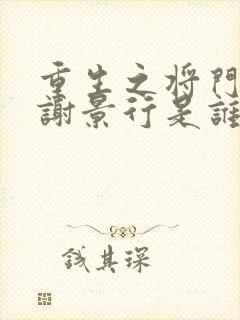 重生之将門
謝景行是誰
錢其琛